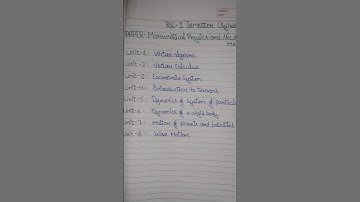 BSC-1 Semester
PAPER- Mathematical Physics and
Unit-1: Vector algebra
Unit-2: Vector Calculus
Unit-3: Coordinate System
Unit-4: Introduction to Tensors
Unit-5: Dynamics of System of particles
Unit-6: Dynamics of a rigid body
Unit-7: Motion of planets and satellites
Unit-8: Wave Motion